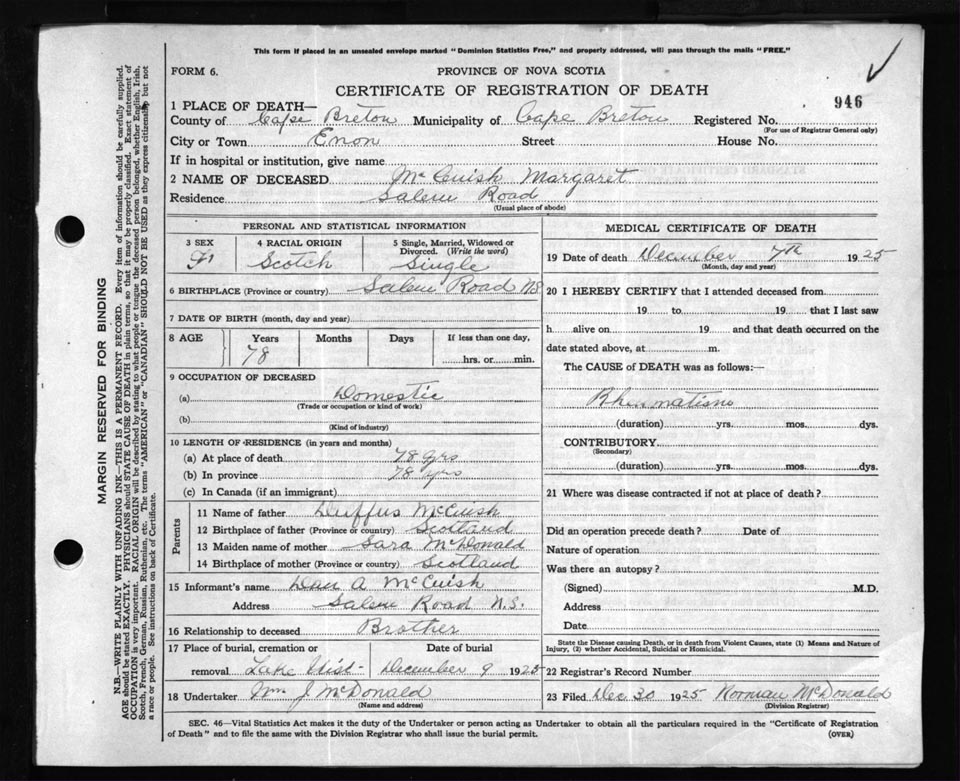 This form if placed in an unsealed envelope marked "Dominion Statistics Free," and properly addressed, will pass through the mails "FREE."
FORM 6.
PROVINCE OF NOVA SCOTIA
CERTIFICATE OF REGISTRATION OF DEATH
946
1 PLACE OF DEATH—
County of Cape Breton Municipality of Cape Breton Registered No.
(For use of Registrar General only)
City or Town Enon Street House No.
If in hospital or institution, give name
2 NAME OF DECEASED McCuish Margaret
Residence Salem Road
(Usual place of abode)
PERSONAL AND STATISTICAL INFORMATION
3 SEX 4 RACIAL ORIGIN 5 Single, Married, Widowed or Divorced. (Write the word)
F Scotch Single
6 BIRTHPLACE (Province or country) Salem Road NS
7 DATE OF BIRTH (month, day and year)
8 AGE Years Months Days If less than one day,
78 hrs. or min.
9 OCCUPATION OF DECEASED
(a) Domestic
(Trade or occupation or kind of work)
(b)
(Kind of industry)
10 LENGTH OF RESIDENCE (in years and months)
(a) At place of death 78 yrs
(b) In province 78 yrs
(c) In Canada (if an immigrant)
Parents
11 Name of father Duffus McCuish
12 Birthplace of father (Province or country) Scotland
13 Maiden name of mother Sara McDonald
14 Birthplace of mother (Province or country) Scotland
15 Informant's name Dan A McCuish
Address Salem Road N.S.
16 Relationship to deceased Brother
17 Place of burial, cremation or removal Date of burial
Lake December 9 1925
18 Undertaker Wm J McDonald
(Name and address)
MEDICAL CERTIFICATE OF DEATH
19 Date of death December 7th 1925
(Month, day and year)
20 I HEREBY CERTIFY that I attended deceased from
19 to 19 that I last saw
h alive on 19 and that death occurred on the
date stated above, at m.
The CAUSE of DEATH was as follows:—
Rheumatism
(duration) yrs. mos. dys.
CONTRIBUTORY
(Secondary)
(duration) yrs. mos. dys.
21 Where was disease contracted if not at place of death?
Did an operation precede death? Date of
Nature of operation
Was there an autopsy?
(Signed) M.D.
Address
Date
State the Disease causing Death, or in death from Violent Causes, state (1) Means and Nature of
Injury, (2) whether Accidental, Suicidal or Homicidal.
22 Registrar's Record Number
23 Filed Dec 30 1925 Norman McDonald
(Division Registrar)
SEC. 46—Vital Statistics Act makes it the duty of the Undertaker or person acting as Undertaker to obtain all the particulars required in the "Certificate of Registration
of Death" and to file the same with the Division Registrar who shall issue the burial permit. (OVER)
MARGIN RESERVED FOR BINDING
N.B.—WRITE PLAINLY WITH UNFADING INK—THIS IS A PERMANENT RECORD. Every item of information should be carefully supplied.
AGE should be stated EXACTLY. PHYSICIANS should STATE CAUSE OF DEATH in plain terms, so that it may be properly classified. Exact statement of
OCCUPATION is very important. RACIAL ORIGIN will be described by stating to what people or tongue the deceased person belonged, whether English, Irish,
Scotch, French, German, Russian, Ruthenian, etc. The terms "AMERICAN" or "CANADIAN" SHOULD NOT BE USED as they express citizenship but not
a race or people. See instructions on back of Certificate.